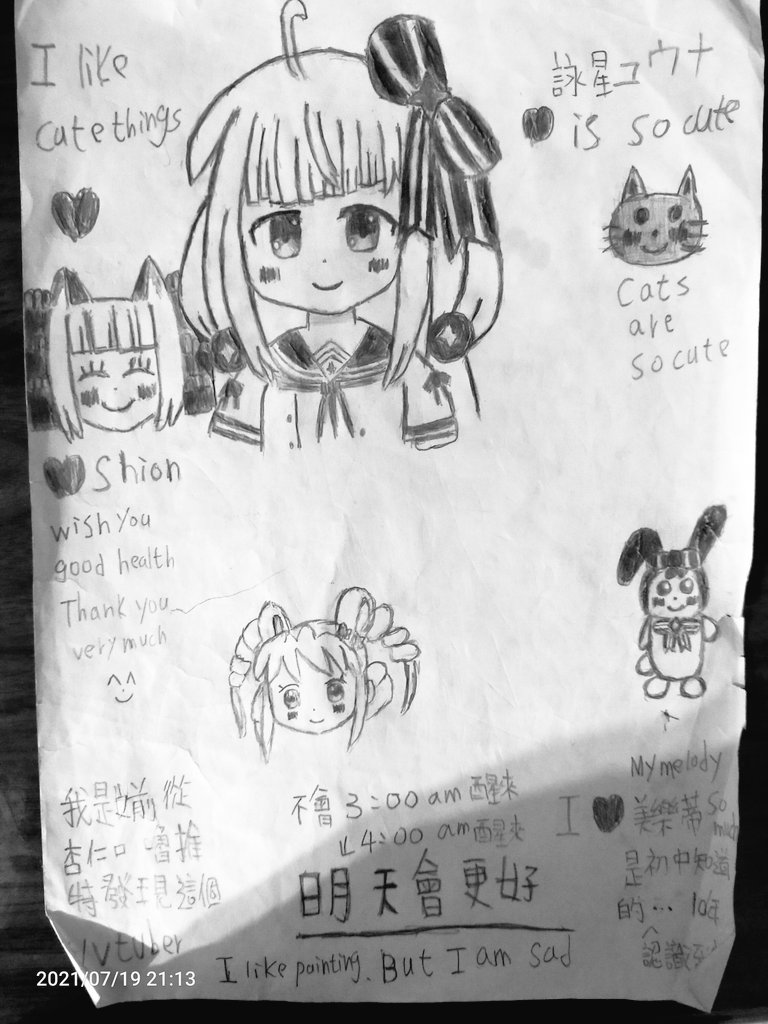 I like
cute things
詠星ユウナ
is so cute
Cats
are
so cute
Shion
wish you
good health
Thank you
very much
^^
My melody
I 美樂蒂 so much
是初中知道
的… 10年
認識到
我是
從
杏仁口嚕推
特發現這個
vtuber
不會 3:00 am 醒來
4:00 am 醒來
明天會更好
I like painting. But I am sad
2021/07/19 21:13